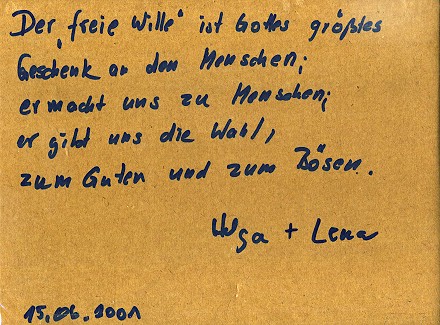 Der „freie Wille“ ist Gottes größtes
Geschenk an den Menschen;
er macht uns zu Menschen;
er gibt uns die Wahl,
zum Guten und zum Bösen.
Helga + Lena
15.06.2001